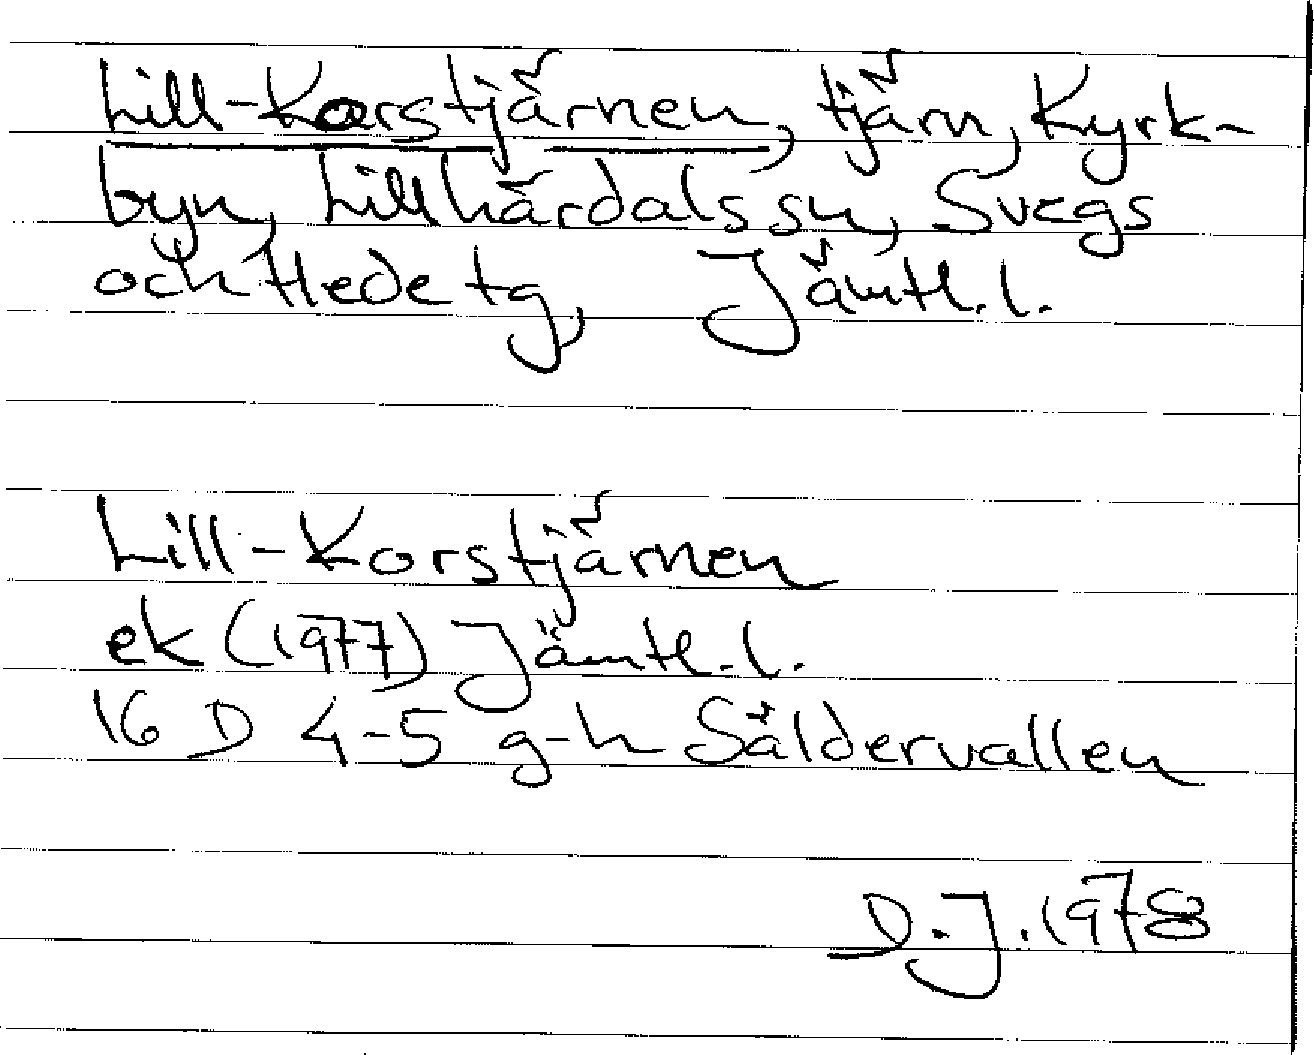 Lill-Korstjärnen, tjärn, Kyrk-
byn, Lillhärdals sn, Svegs
och Hede tg, Jämtl. l.
Lill-Korstjärnen
ek (1977) Jämtl. l.
16 D 4-5 g-h Säldervallen
D.J. 1978